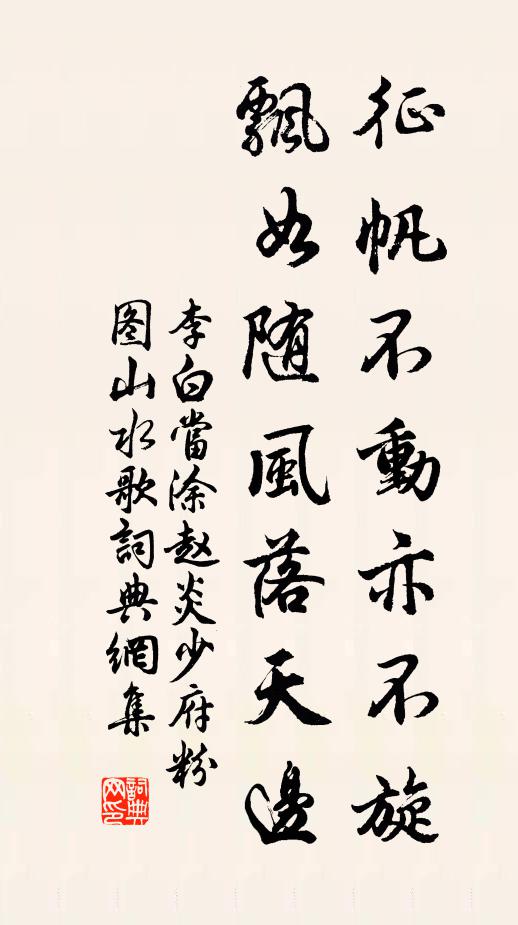 征帆不動亦不旋
飄如随風落天邊
李白當涂赵炎少府粉
图山水歌詞典網集
詞典
网印